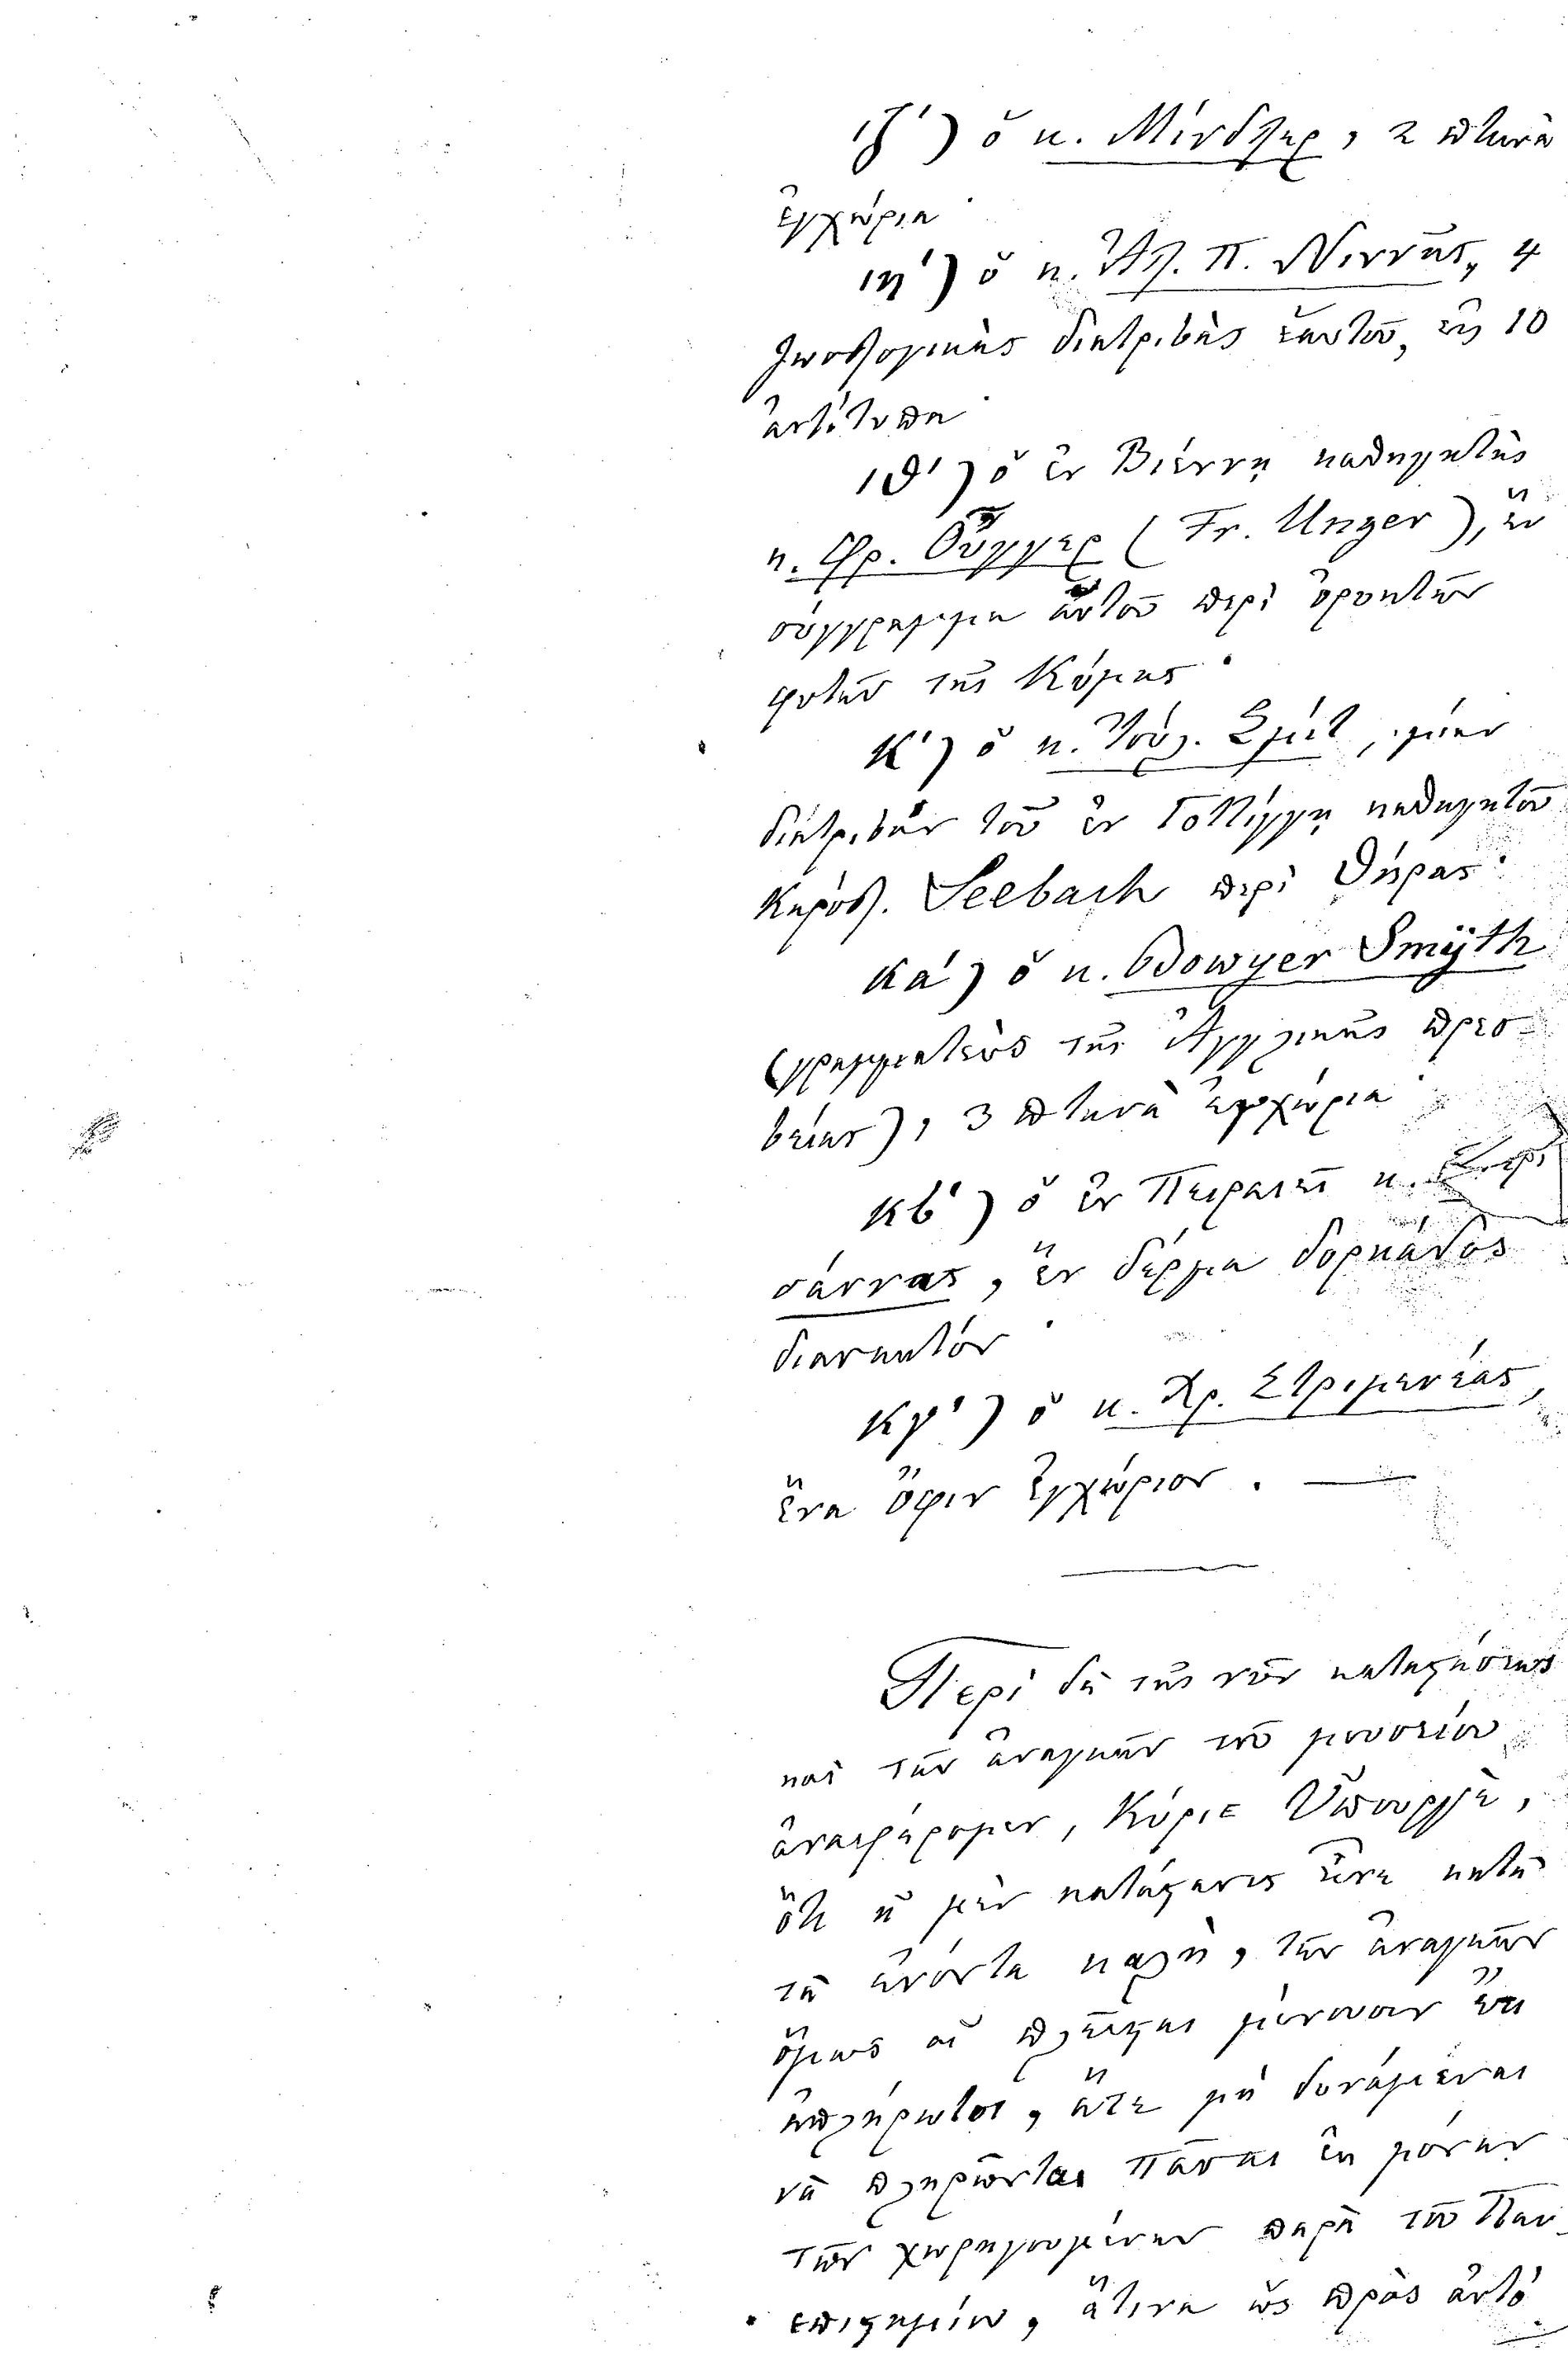 ιζ΄) ὁ κ. Μίνδλερ, 2 πτηνὰ
ἐγχώρια·
ιη΄) ὁ κ. Ἀλ. Π. Νιννῆς, 4
ζωολογικὰς διατριβὰς ἑαυτοῦ, εἰς 10
ἀντίτυπα·
ιθ΄) ὁ ἐν Βιέννῃ καθηγητὴς
κ. Φρ. Οὖγγερ (Fr. Unger), ἓν
σύγγραμμα αὑτοῦ περὶ ὀρυκτῶν
φυτῶν τῆς Κύμης·
κ΄) ὁ κ. Ἰούλ. Σμίτ, μίαν
διατριβὴν τοῦ ἐν Γοττίγγῃ καθηγητοῦ
Καρόλ. Seebach περὶ Θήρας·
κά) ὁ κ. Bowyer Smÿth
(γραμματεὺς τῆς Ἀγγλικῆς πρεσ-
βείας), 3 πτηνὰ ἐγχώρια·
κβ΄) ὁ ἐν Πειραιεῖ κ.
σάννας, ἓν δέρμα δορκάδος
διανυκτόν·
κγ΄) ὁ κ. Χρ. Στριμενέας,
ἕνα ὄφιν ἐγχώριον. —
Περὶ δὲ τῆς νῦν καταστάσεως
καὶ τῶν ἀναγκῶν τοῦ μουσείου
ἀναφέρομεν, Κύριε Ὑπουργὲ,
ὅτι ἡ μὲν κατάστασις εἶνε κατὰ
τὰ ἐνόντα καλὴ, τῶν ἀναγκῶν
ὅμως αἱ πλεῖσται μένουσιν ἔτι
ἀπλήρωτοι, ἅτε μὴ δυνάμεναι
νὰ πληρῶνται πᾶσαι ἐκ μόνων
τῶν χορηγουμένων παρὰ τοῦ Παν-
επιστημίου, ἅτινα ὡς πρὸς αὐτὸ